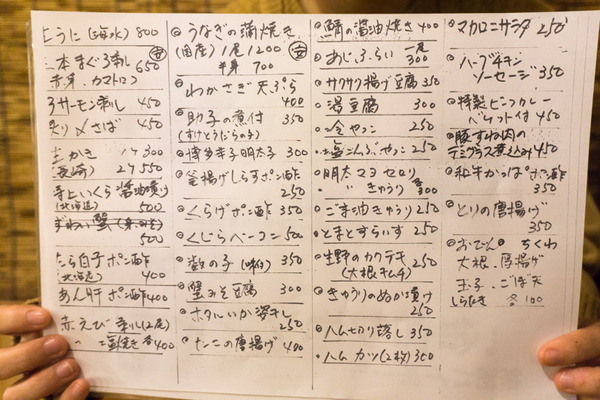 生うに(海水) 800
本まぐろ刺し 650
赤身、カマトロ
サーモン刺し 450
炙り〆さば 450
生かき 1ヶ300
(長崎) 2ヶ550
寺上いくら醤油漬り
(北海道) 500
ずわい蟹
500
たら白子ポン酢
(北海道) 400
あん肝ポン酢 400
赤えび 刺し(2尾)
〃 塩焼き 各400
うなぎの蒲焼き
(国産) 1尾1200
半身 700
わかさぎ天ぷら
400
助子の煮付 350
(すけとうだらの子)
博多辛子明太子 300
釜揚げしらすポン酢
250
くらげポン酢 350
くじらベーコン 500
数の子(味付) 350
蟹みそ豆腐 300
ホタルいか姿干し
250
なんこの唐揚げ 400
鯖の醤油焼き 400
あじふらい 一尾
300
サクサク揚げ豆腐 350
湯豆腐 300
冷やっこ 250
塩こんぶやっこ 250
明太マヨセロリ
〃 きゅうり 各300
ごま油きゅうり 250
とまとすらいす 250
生野のカクテキ 250
(大根キムチ)
きゅうりのぬか漬け
250
ハム切り落し 350
ハムカツ(2枚) 350
マカロニサラダ 250
ハーブチキン
ソーセージ 350
特製ビーフカレー
バケット付 450
豚すね肉の
デミグラス煮込み 450
和牛かっぱポン酢
350
とりの唐揚げ
350
おでん ちくわ
大根、厚揚げ
玉子、ごぼ天
しらたき 各100